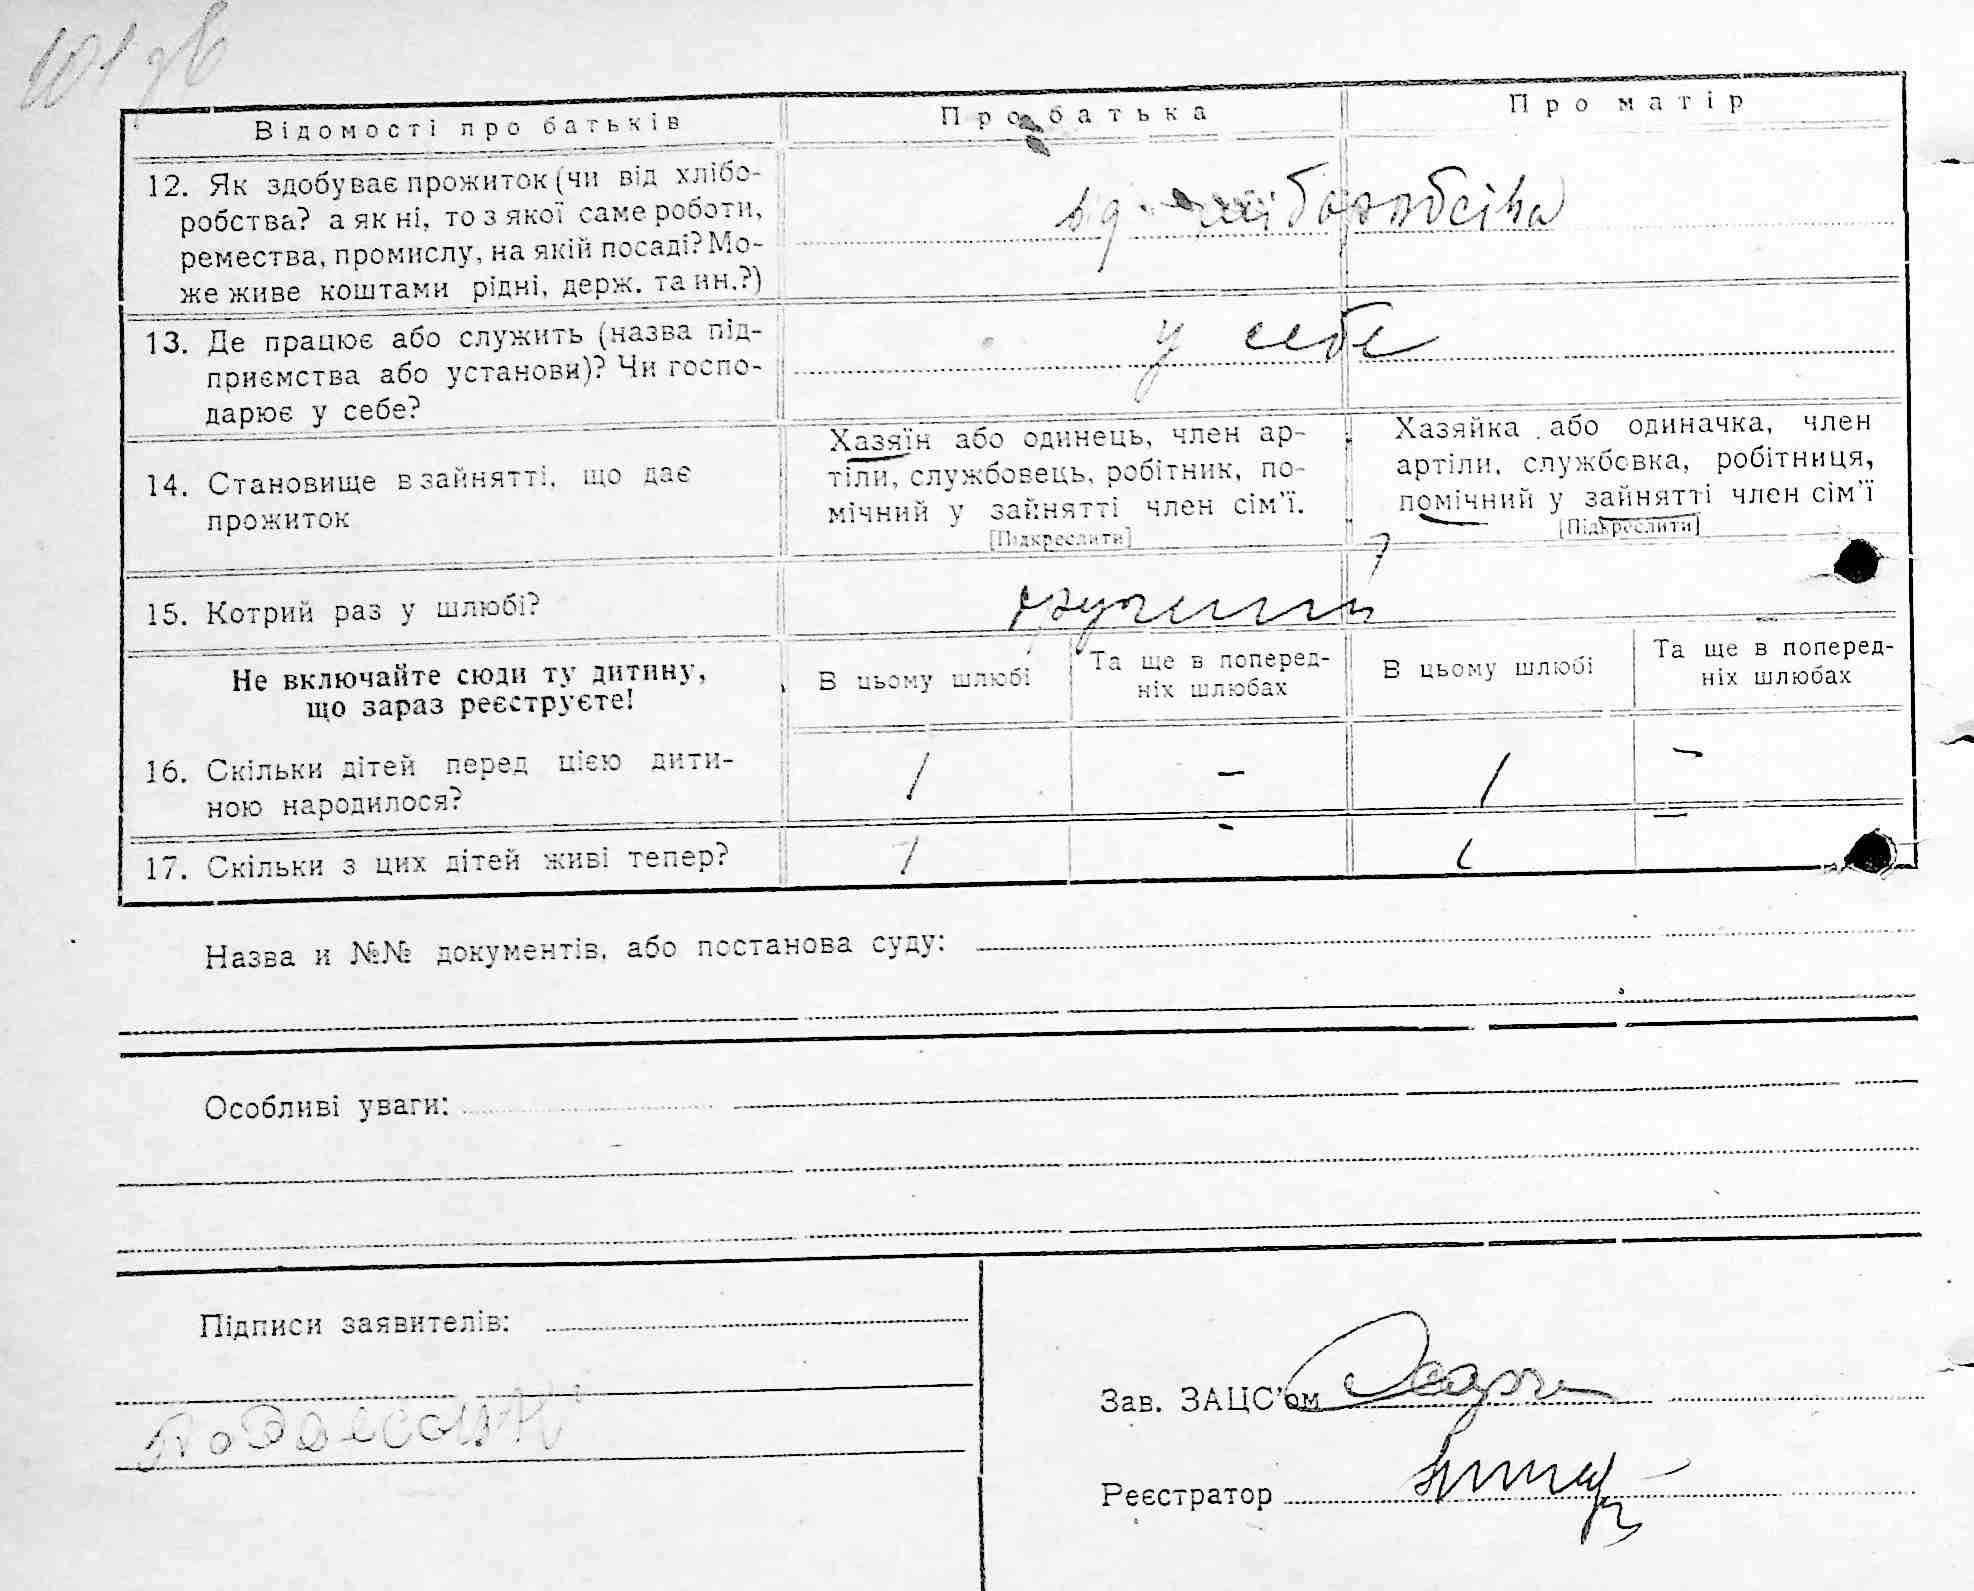 Відомості про батьків
Про батька
Про матір
12. Як здобуває прожиток (чи від хлібо-
робства? а як ні, то з якої саме роботи,
ремества, промислу, на якій посаді? Мо-
же живе коштами рідні, держ. та ин.?)
13. Де працює або служить (назва під-
приємства або установи)? Чи госпо-
дарює у себе?
у себе
14. Становище в зайнятті, що дає
прожиток
Хазяїн або одинець, член ар-
тіли, службовець, робітник, по-
мічний у зайнятті член сім'ї.
[Підкреслити]
Хазяйка або одиначка, член
артіли, службовка, робітниця,
помічний у зайнятті член сім'ї
[Підкреслити]
15. Котрий раз у шлюбі?
Не включайте сюди ту дитину,
що зараз реєструєте!
В цьому шлюбі
Та ще в поперед-
ніх шлюбах
В цьому шлюбі
Та ще в поперед-
ніх шлюбах
16. Скільки дітей перед цією дити-
ною народилося?
1 - 1 -
17. Скільки з цих дітей живі тепер?
1 - 1 -
Назва и №№ документів, або постанова суду:
Особливі уваги:
Підписи заявителів:
Зав. ЗАЦС'ом
Реєстратор